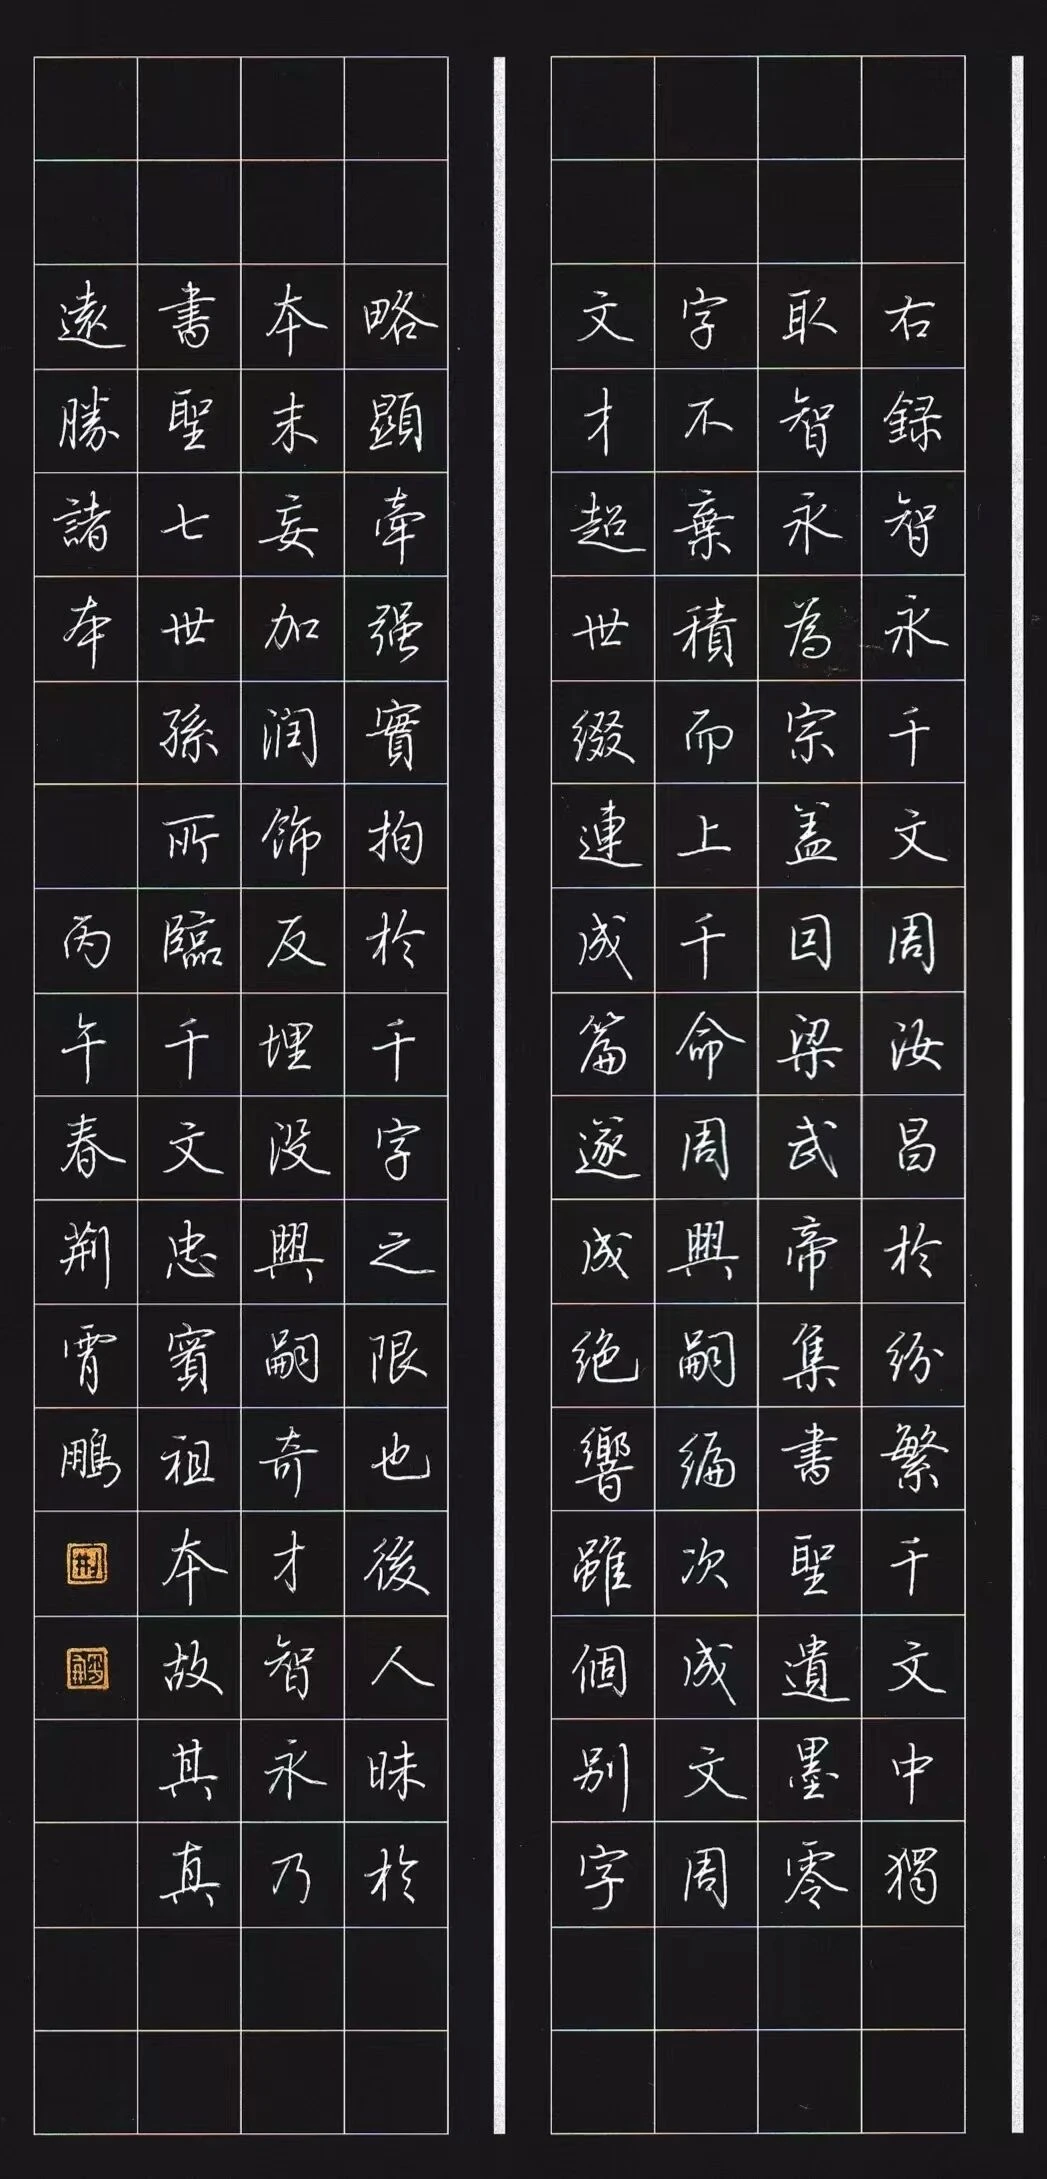 右録智永千文周汝昌於紛繁千文中獨
取智永為宗蓋因梁武帝集書聖遺墨零
字不棄積而上千命周興嗣編次成文周
文才超世綴連成篇遂成絶響雖個别字
略顯牽强實拘於千字之限也後人昧於
本末妄加润飾反埋没興嗣奇才智永乃
書聖七世孫所臨千文忠實祖本故其真
遠勝諸本 丙午春荆霄鵬